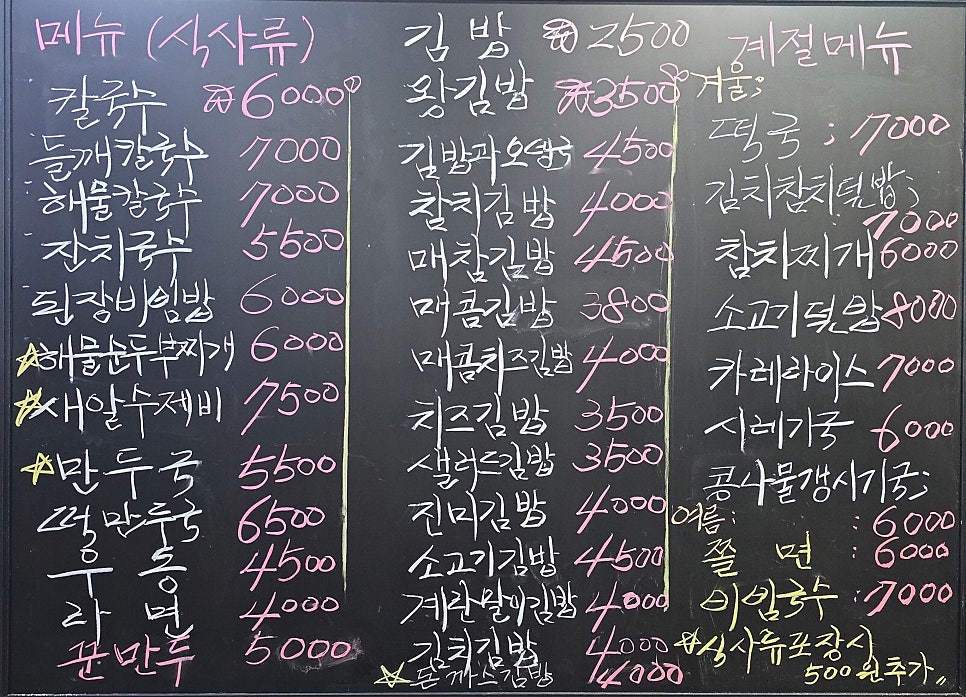 메뉴 (식사류)
칼국수 ₩6000
들깨칼국수 7000
해물칼국수 7000
잔치국수 5500
된장비빔밥 6000
☆해물순두부찌개 6000
☆새알수제비 7500
☆만두국 5500
떡만두국 6500
우동 4500
라면 4000
군만두 5000
김밥 ₩2500
왕김밥 ₩3500
김밥과오뎅국 4500
참치김밥 4000
매참김밥 4500
매콤김밥 3800
매콤치즈김밥 4000
치즈김밥 3500
샐러드김밥 3500
진미김밥 4000
소고기김밥 4500
계란말이김밥 4000
김치김밥 4000
☆돈까스김밥 4000
계절메뉴
겨울;
떡국 ; 7000
김치참치덮밥;
7000
참치찌개 6000
소고기덮밥 8000
카레라이스 7000
시레기국 6000
콩나물갱시기국;
: 6000
여름:
쫄면 : 6000
비빔국수 : 7000
☆식사류포장시
500원추가"